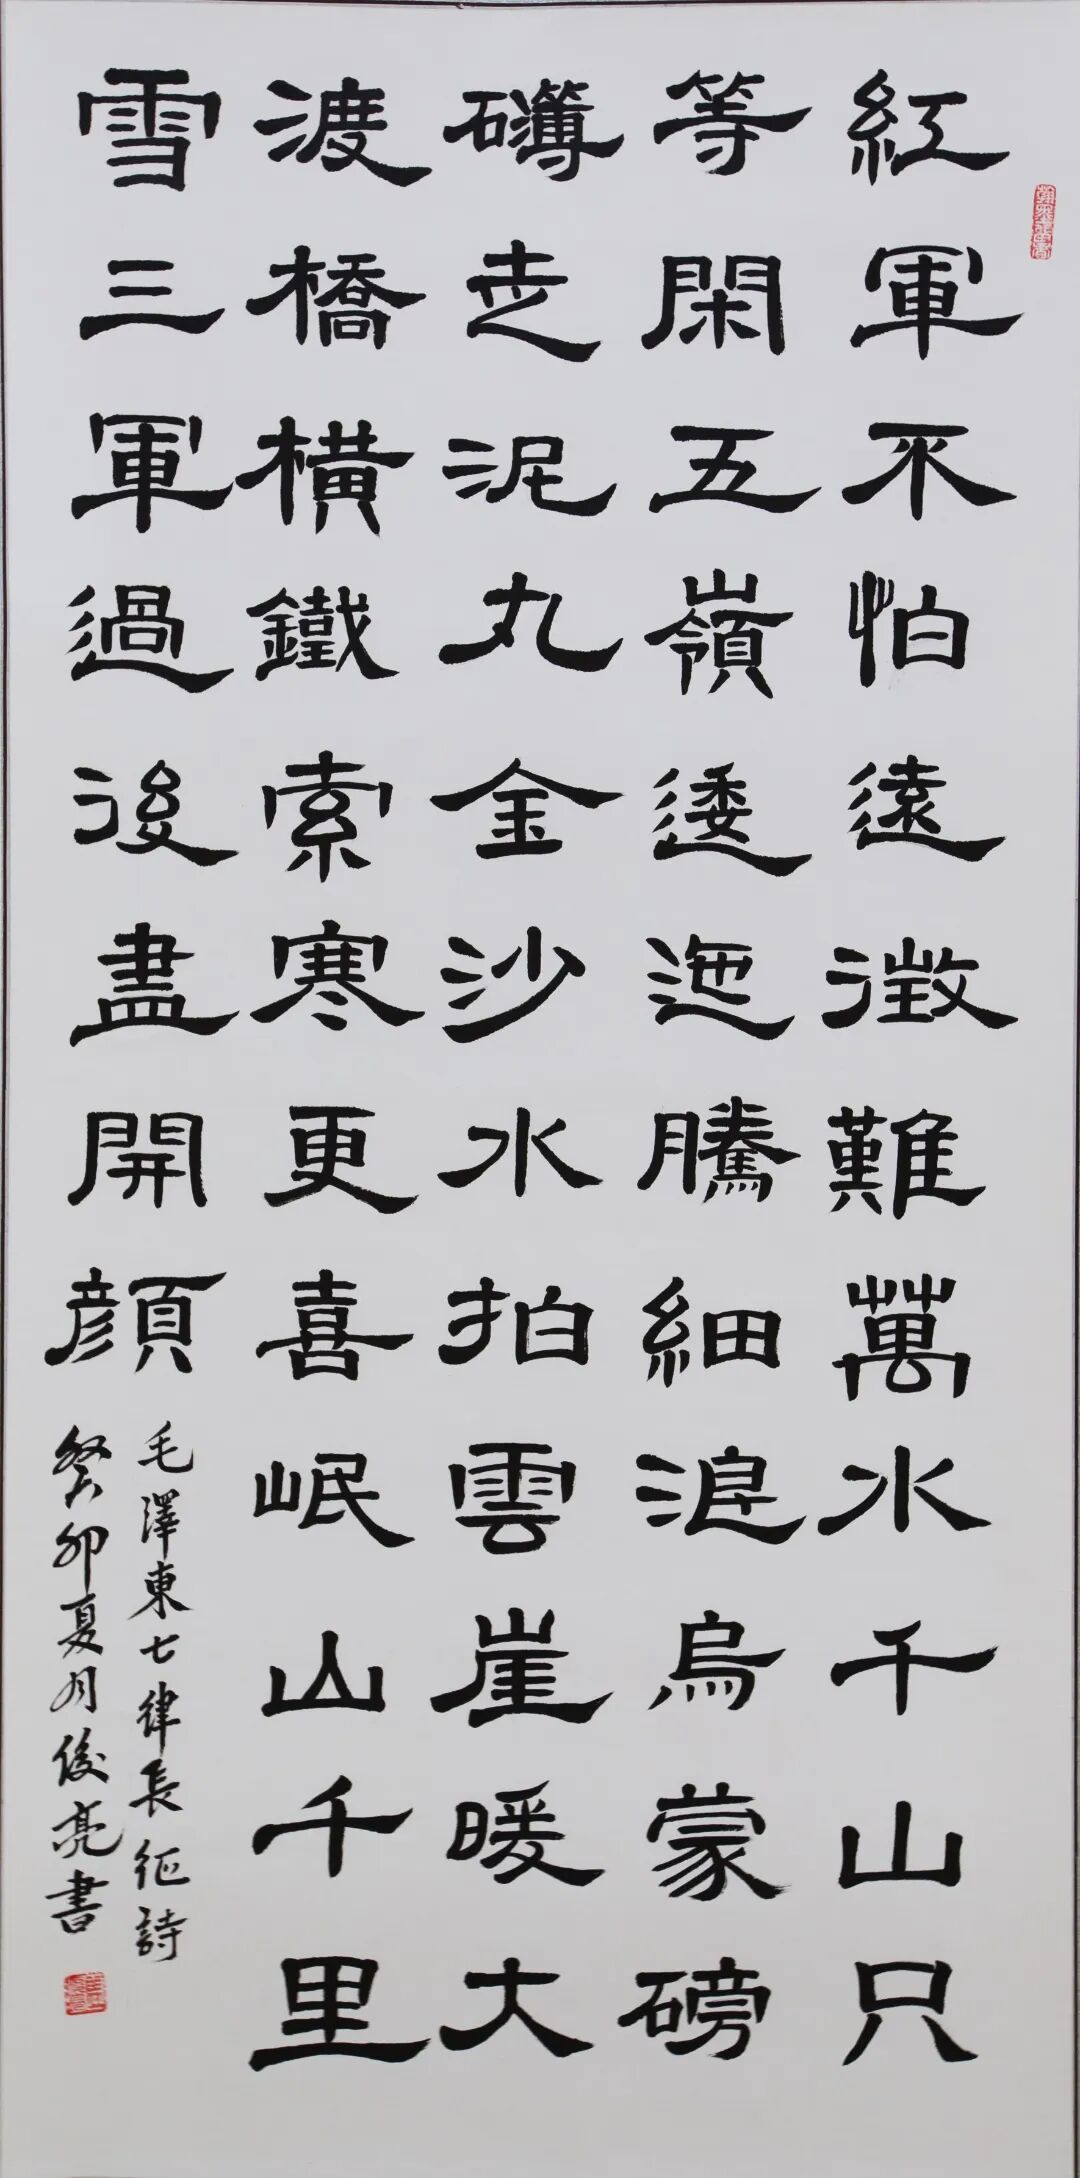 紅軍不怕遠徵難萬水千山只
等閑五嶺逶迤騰細浪烏蒙磅
礴走泥丸金沙水拍雲崖暖大
渡橋橫鐵索寒更喜岷山千里
雪三軍過後盡開顏
毛澤東七律長征詩
癸卯夏月俊亮書